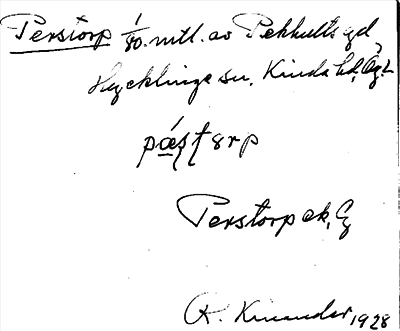 Perstorp 1/80 mtl. av Pekhults gd
Hycklinge sn, Kinda hd, Ög. L.
Perstorp ek, Ög
R. Kinander 1928